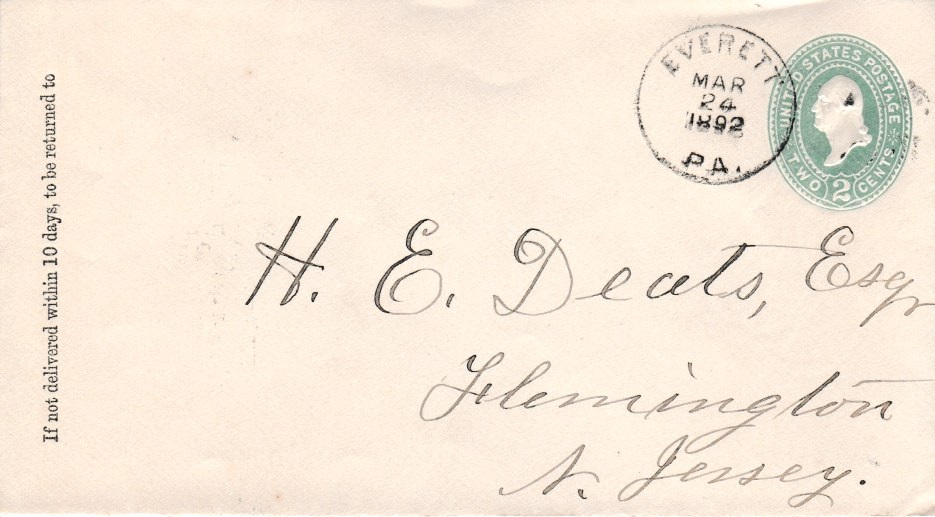 If not delivered within 10 days, to be returned to
EVERETT
MAR
24
1892
PA.
UNITED STATES POSTAGE
TWO 2 CENTS
H. E. Deats, Esq
Flemington
N. Jersey.